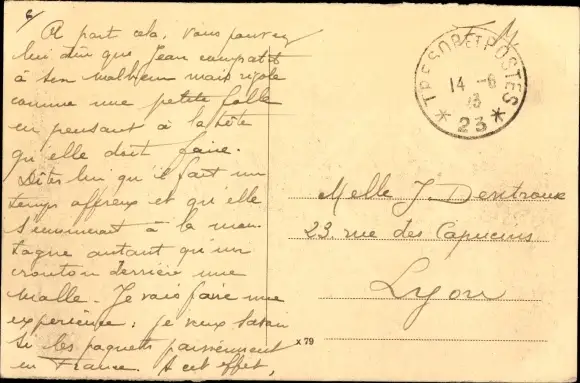 6/
A part cela, vous pouvez
lui dire que Jean compatit
à son malheur mais rigole
comme une petite folle
en pensant à la tête
qu'elle doit faire.
Dites lui qu'il fait un
temps affreux et qu'elle
s'ennuierait à la mon-
tagne autant qu'un
crouton derrière une
malle. Je vais faire une
expérience : je veux savoir
si les paquets parviennent
en France. A cet effet,
F. M.
TRESOR ET POSTES
14 - 6
23
* 23 *
Melle J
23. rue des Capucins
Lyon
x 79